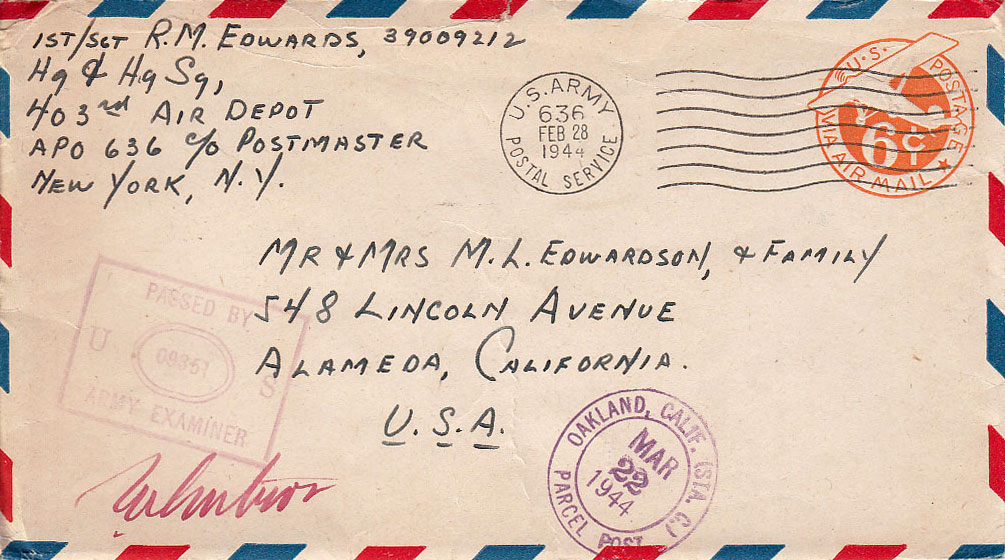 1ST/SGT R.M. EDWARDS, 39009212
Hq & Hq Sq,
403rd AIR DEPOT
APO 636 c/o POSTMASTER
NEW YORK, N.Y.
U.S. ARMY
636
FEB 28
1944
POSTAL SERVICE
U.S. POSTAGE
6¢
VIA AIR MAIL
MR & MRS M.L. EDWARDSON, & FAMILY
548 LINCOLN AVENUE
ALAMEDA, CALIFORNIA.
U.S.A.
PASSED BY
U S
ARMY EXAMINER
OAKLAND, CALIF. (STA. C.)
MAR
22
1944
PARCEL POST